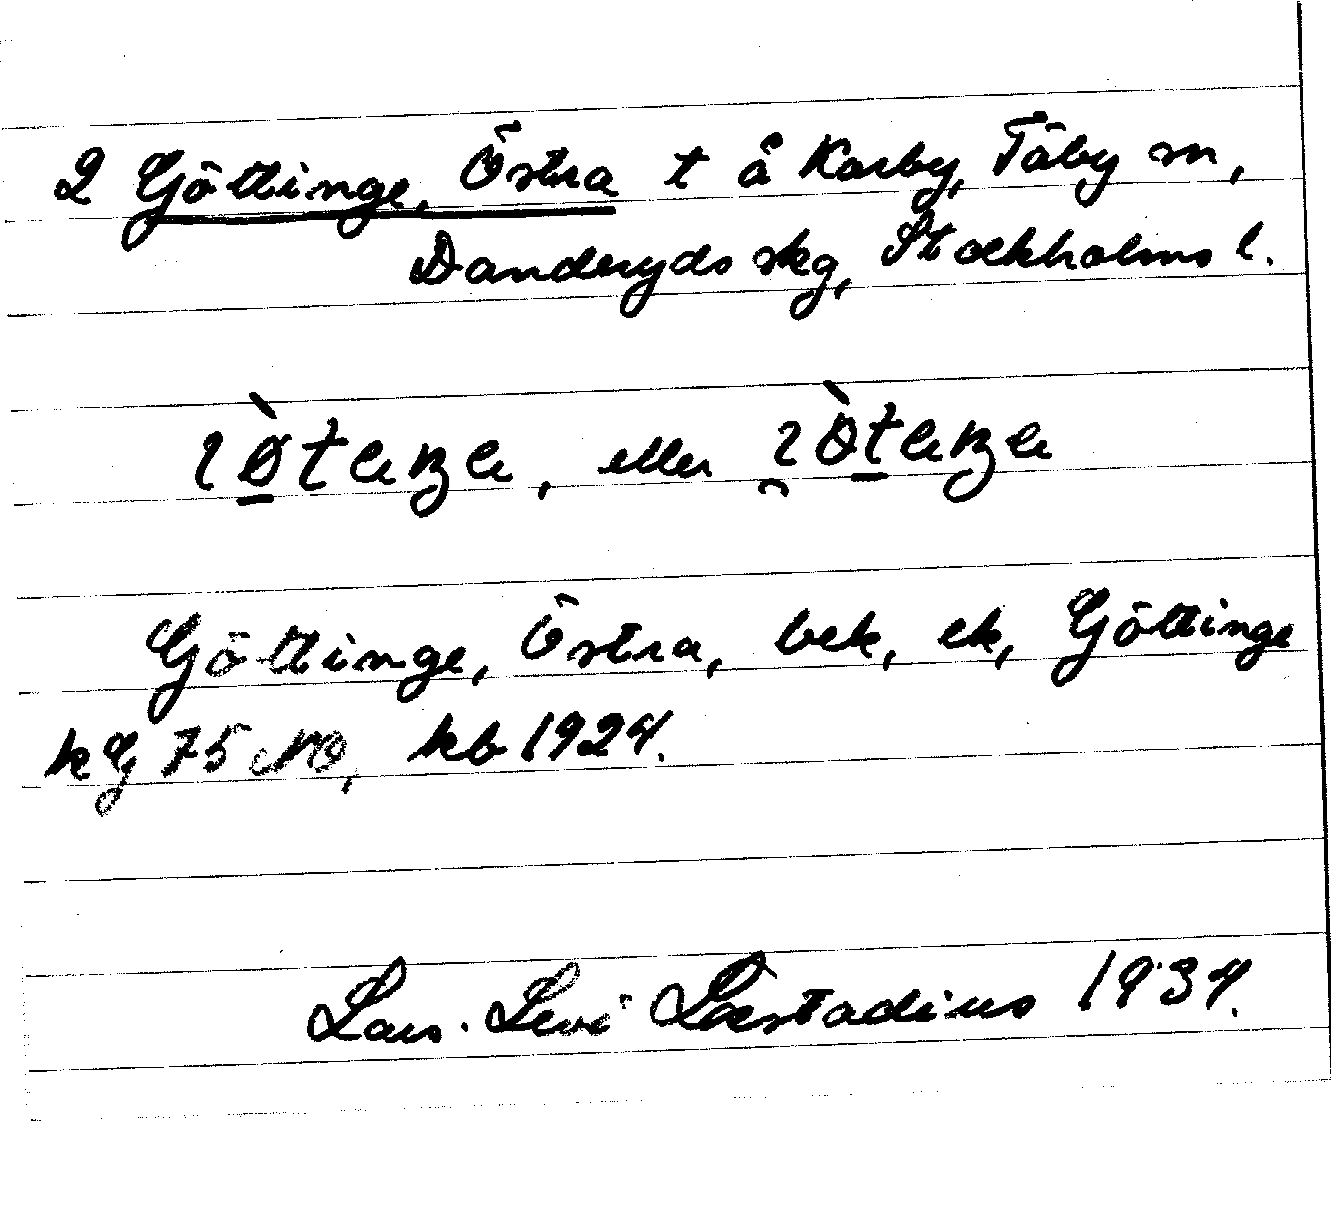 2 Göttinge, Östra t å Karby, Täby sn,
Danderyds skg, Stockholms l.
eller
Göttinge, Östra, bek, ek, Göttinge
kG 75 NO, kb 1924.
Lars. Levi Læstadius 1934.